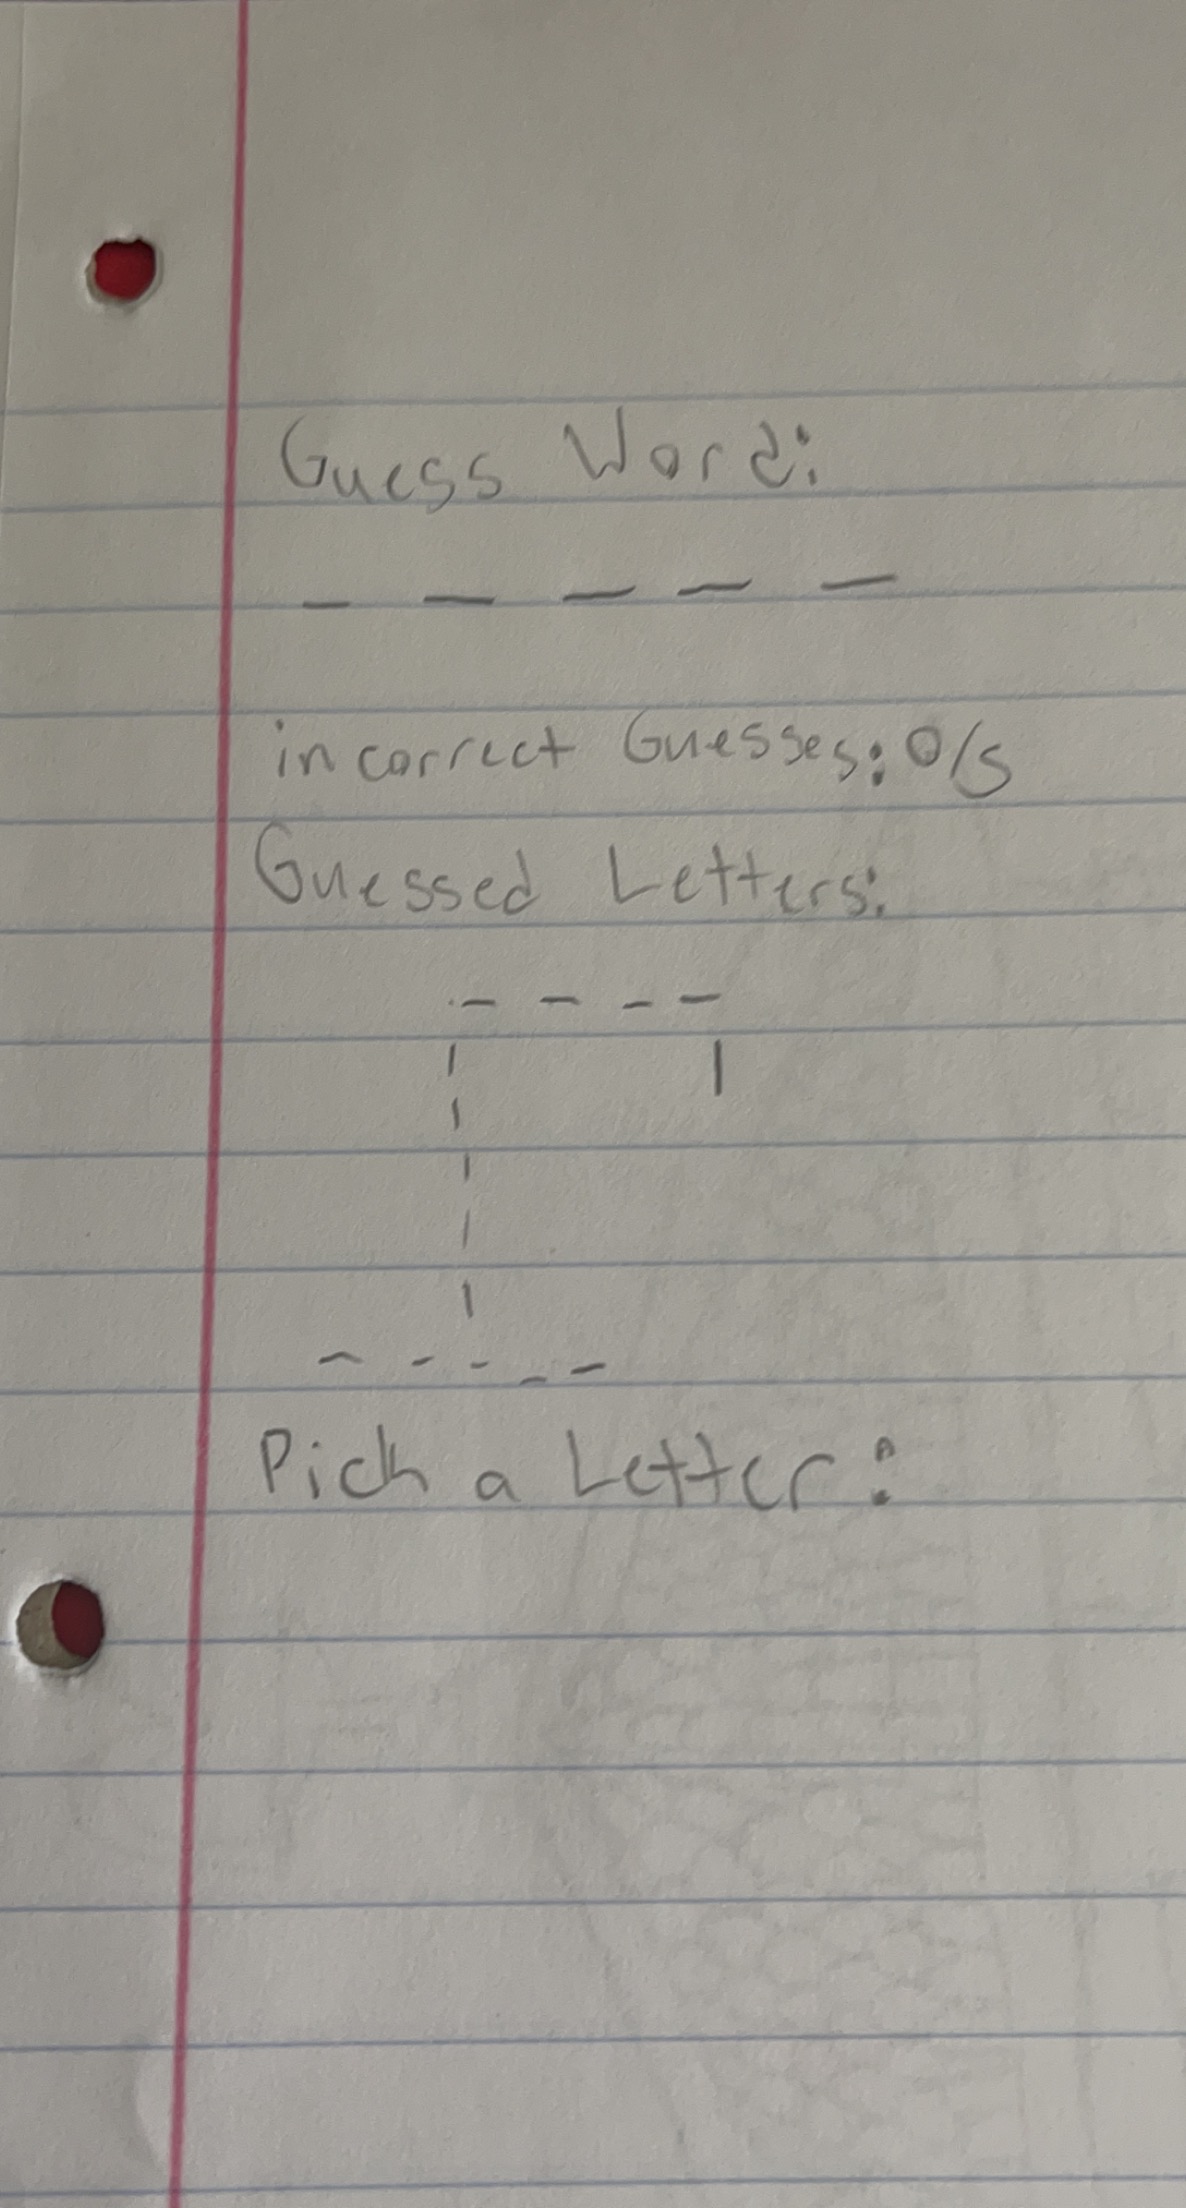 Guess Word:
_ _ _ _ _
incorrect Guesses: 0/5
Guessed Letters:
Pick a Letter: